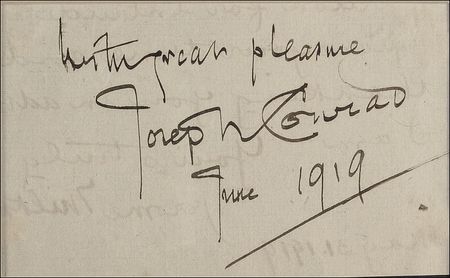 with great pleasure
Joseph Conrad
June 1919